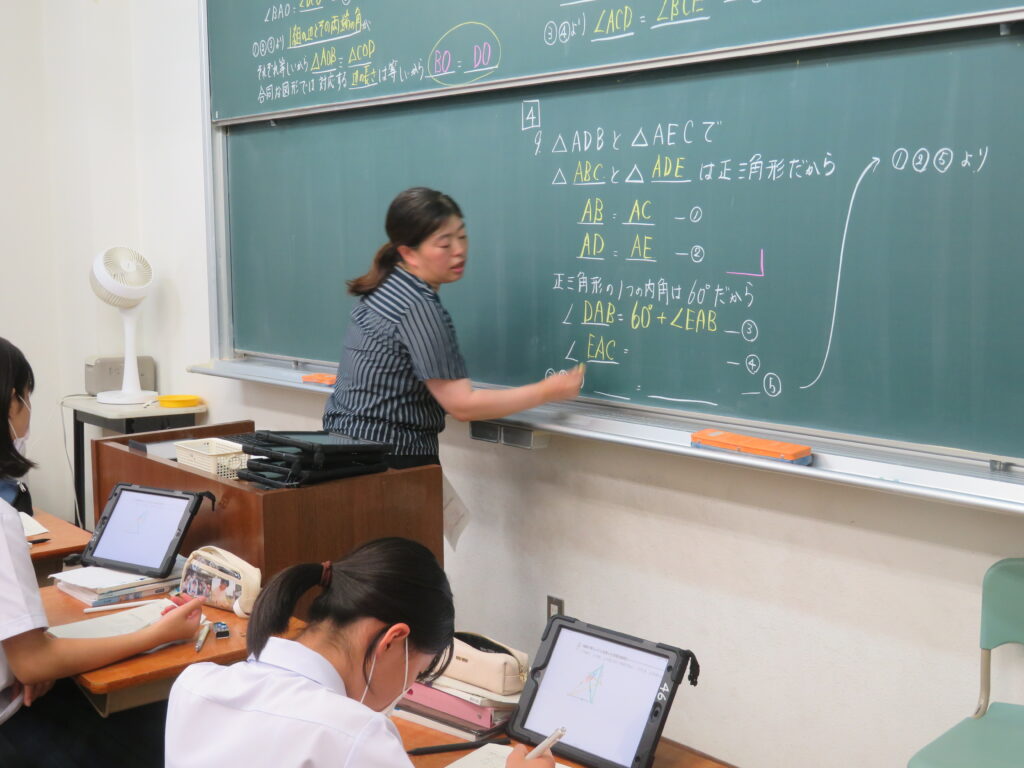 ∠BAO=
①②③より 1組の辺とその両端の角が
それぞれ等しいから △AOB≡△COD
合同な図形では 対応する 辺の長さは等しいから BO = DO
③④より ∠ACD = ∠BCE
4
△ADBと△AECで
△ABCと△ADEは正三角形だから
AB = AC ―①
AD = AE ―②
正三角形の1つの内角は60°だから
∠DAB = 60° + ∠EAB ―③
∠EAC = ―④
= ―⑤
①②⑤より
46